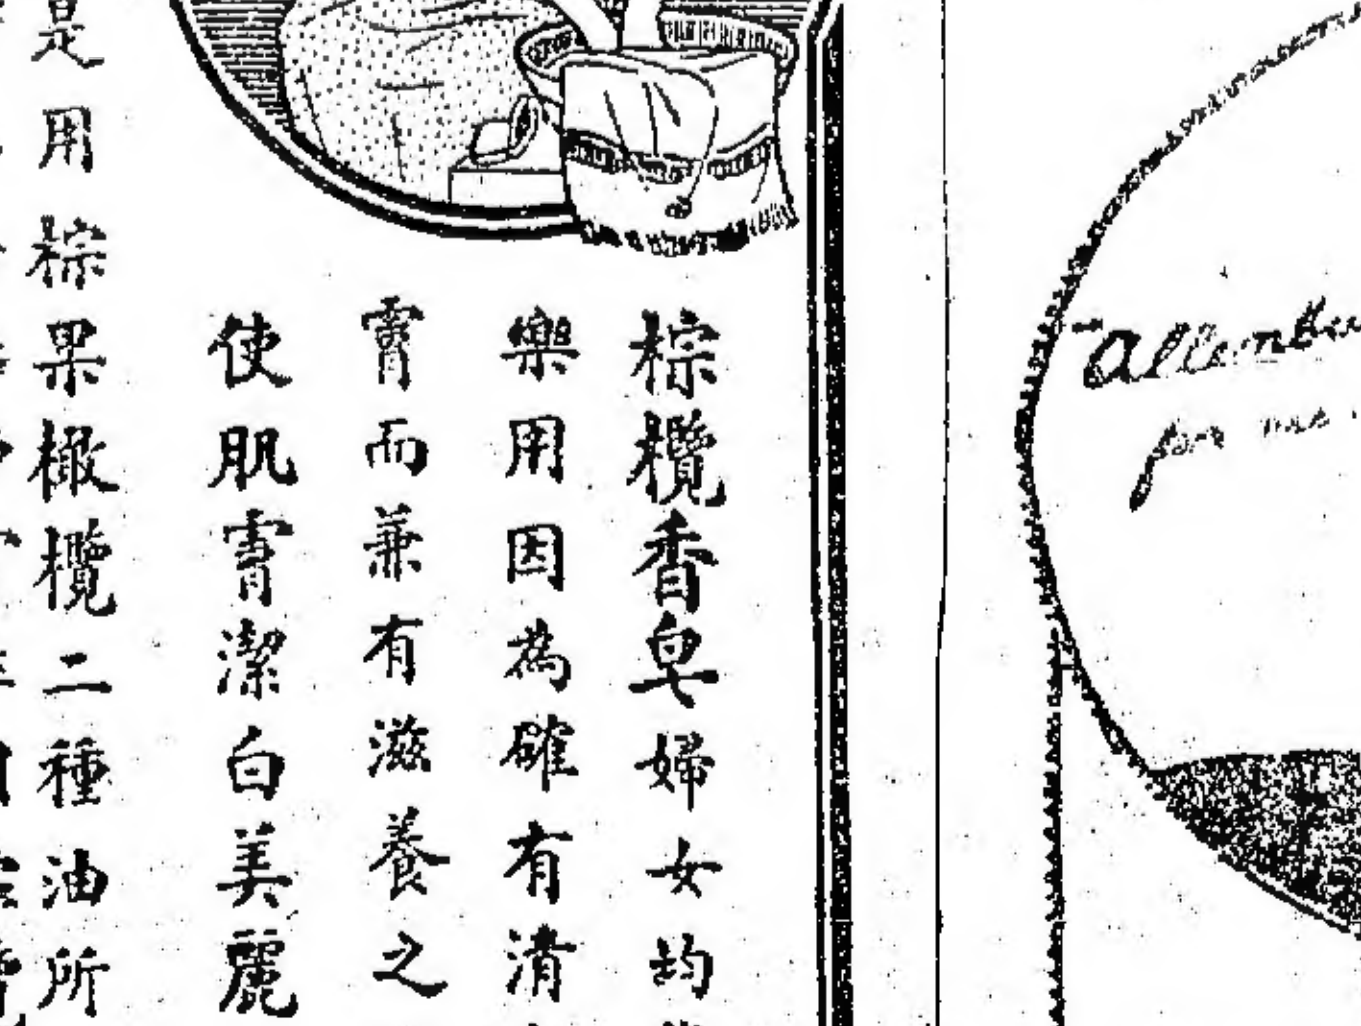 棕欖香皂婦女均
樂用因為確有清
膚而兼有滋養之
使肌膚潔白美麗
是用棕果橄欖二種油所
for